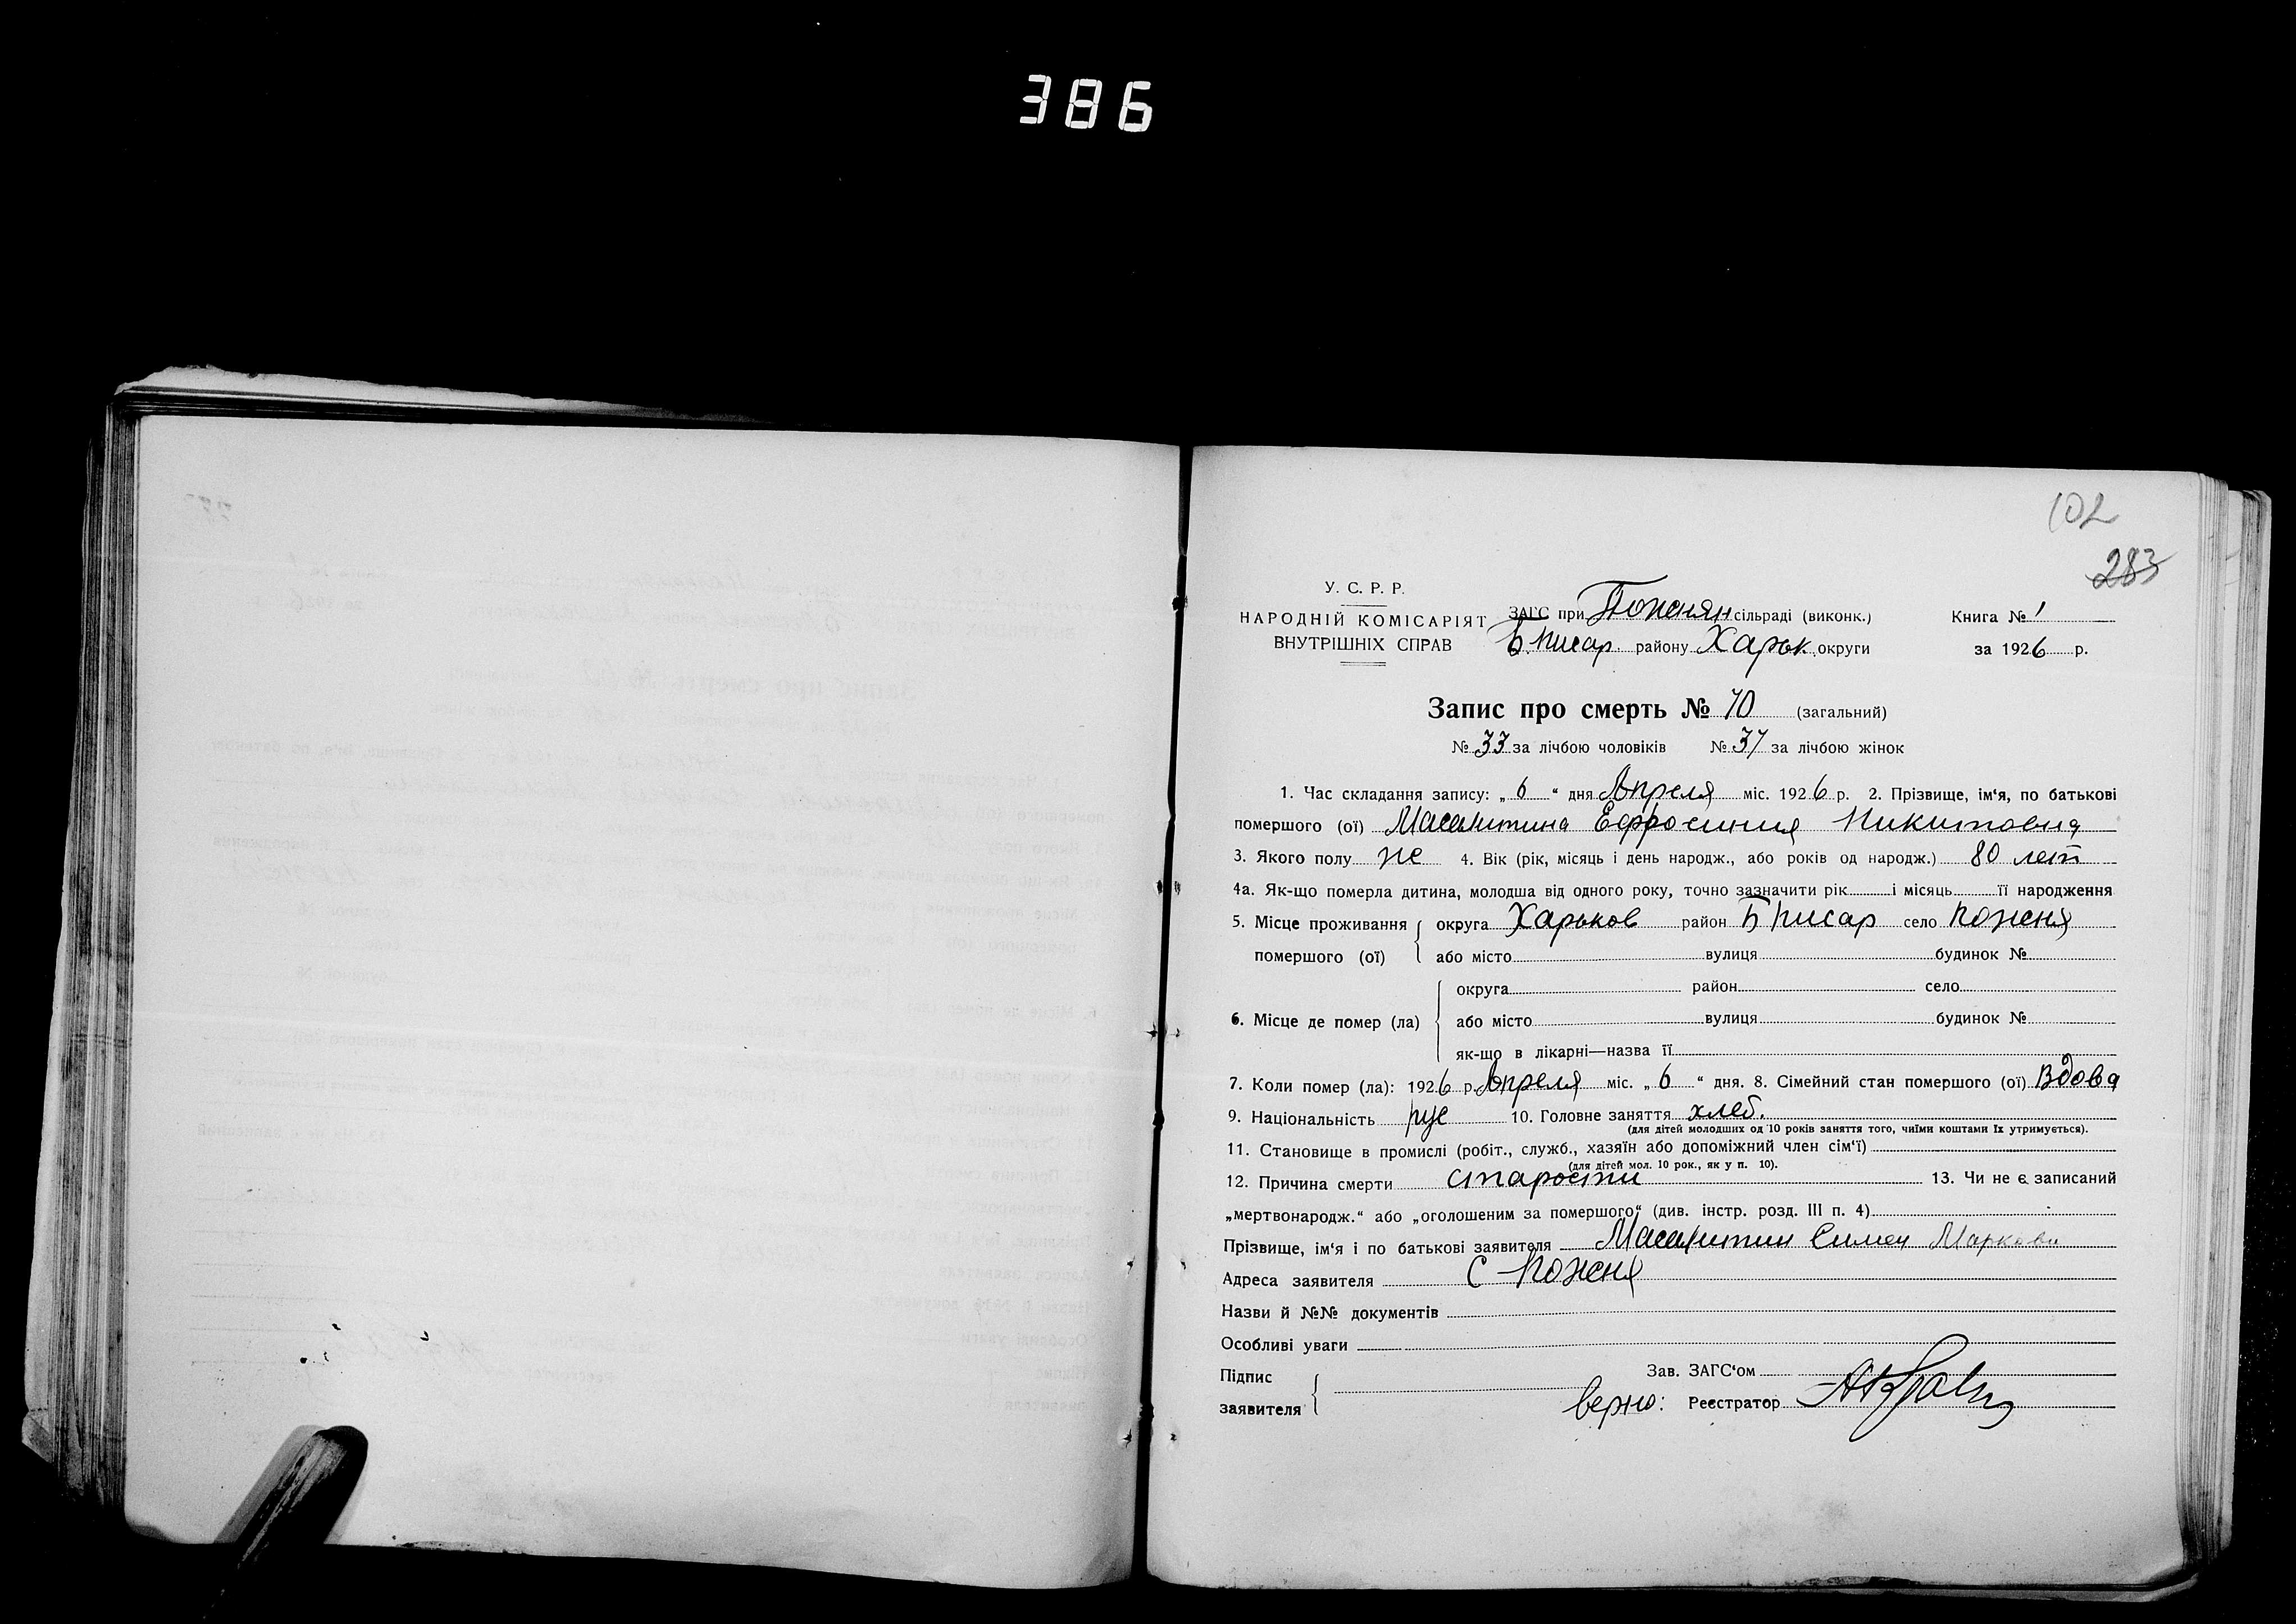 386
102
283
У. С. Р. Р.
НАРОДНІЙ КОМІСАРІЯТ
ВНУТРІШНІХ СПРАВ
ЗАГС при Поженян сільраді (виконк.)
Б. Писар. району Харьк. округи
Книга № 1
за 1926 р.
Запис про смерть № 70 (загальний)
№ 33 за лічбою чоловіків № 37 за лічбою жінок
1. Час складання запису: „ 6 “ дня Апреля міс. 1926 р. 2. Прізвище, ім‘я, по батькові
помершого (ої) Масалитина Ефросиния Никитовна
3. Якого полу же 4. Вік (рік, місяць і день народж., або років од народж.) 80 лет
4а. Як-що померла дитина, молодша від одного року, точно зазначити рік і місяць її народження
5. Місце проживання округа Харьков район Б Писар село Поженя
помершого (ої) або місто вулиця будинок №
округа район село
6. Місце де помер (ла) або місто вулиця будинок №
як-що в лікарні—назва її
7. Коли помер (ла): 1926 р. Апреля міс. „ 6 “ дня. 8. Сімейний стан помершого (ої) Вдова
9. Національність рус 10. Головне заняття хлеб.
(для дітей молодших од 10 років заняття того, чиїми коштами їх утримується).
11. Становище в промислі (робіт., служб., хазяїн або допоміжний член сім‘ї)
(для дітей мол. 10 рок., як у п. 10).
12. Причина смерти старости 13. Чи не є записаний
„мертвонародж.“ або „оголошеним за помершого“ (див. інстр. розд. III п. 4)
Прізвище, ім‘я і по батькові заявителя Масалитин Симен Маркови
Адреса заявителя с Поженя
Назви й №№ документів
Особливі уваги
Підпис
заявителя
Зав. ЗАГС‘ом
верно: Реєстратор